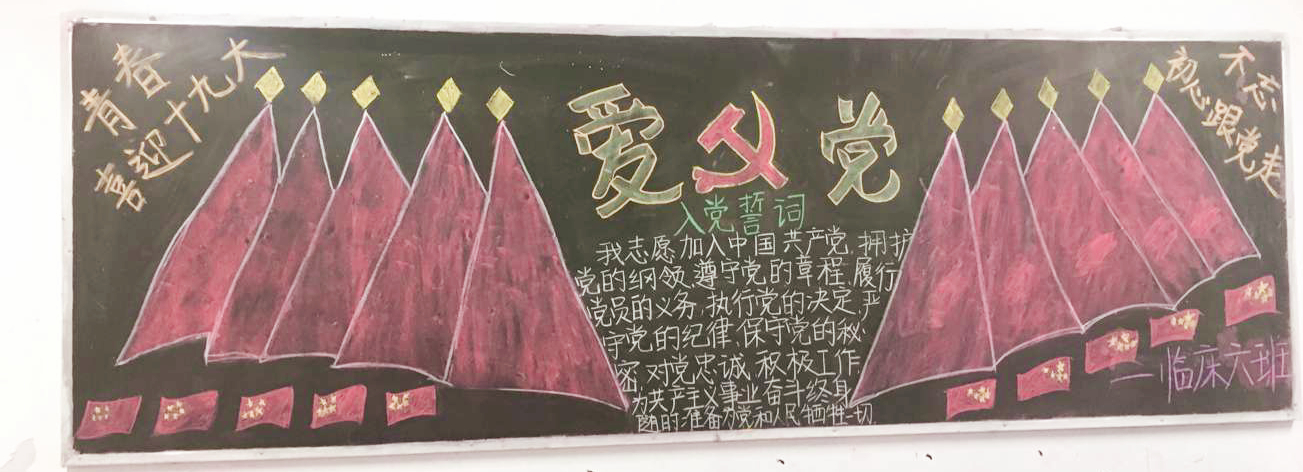 青春
喜迎十九大
爱父党
不忘
初心跟党走
入党誓词
我志愿加入中国共产党,拥护
党的纲领,遵守党的章程,履行
党员的义务,执行党的决定,严
守党的纪律,保守党的秘
密,对党忠诚,积极工作,
为共产主义事业奋斗终身,
随的准备为党和人民牺牲一切.
一临床六班